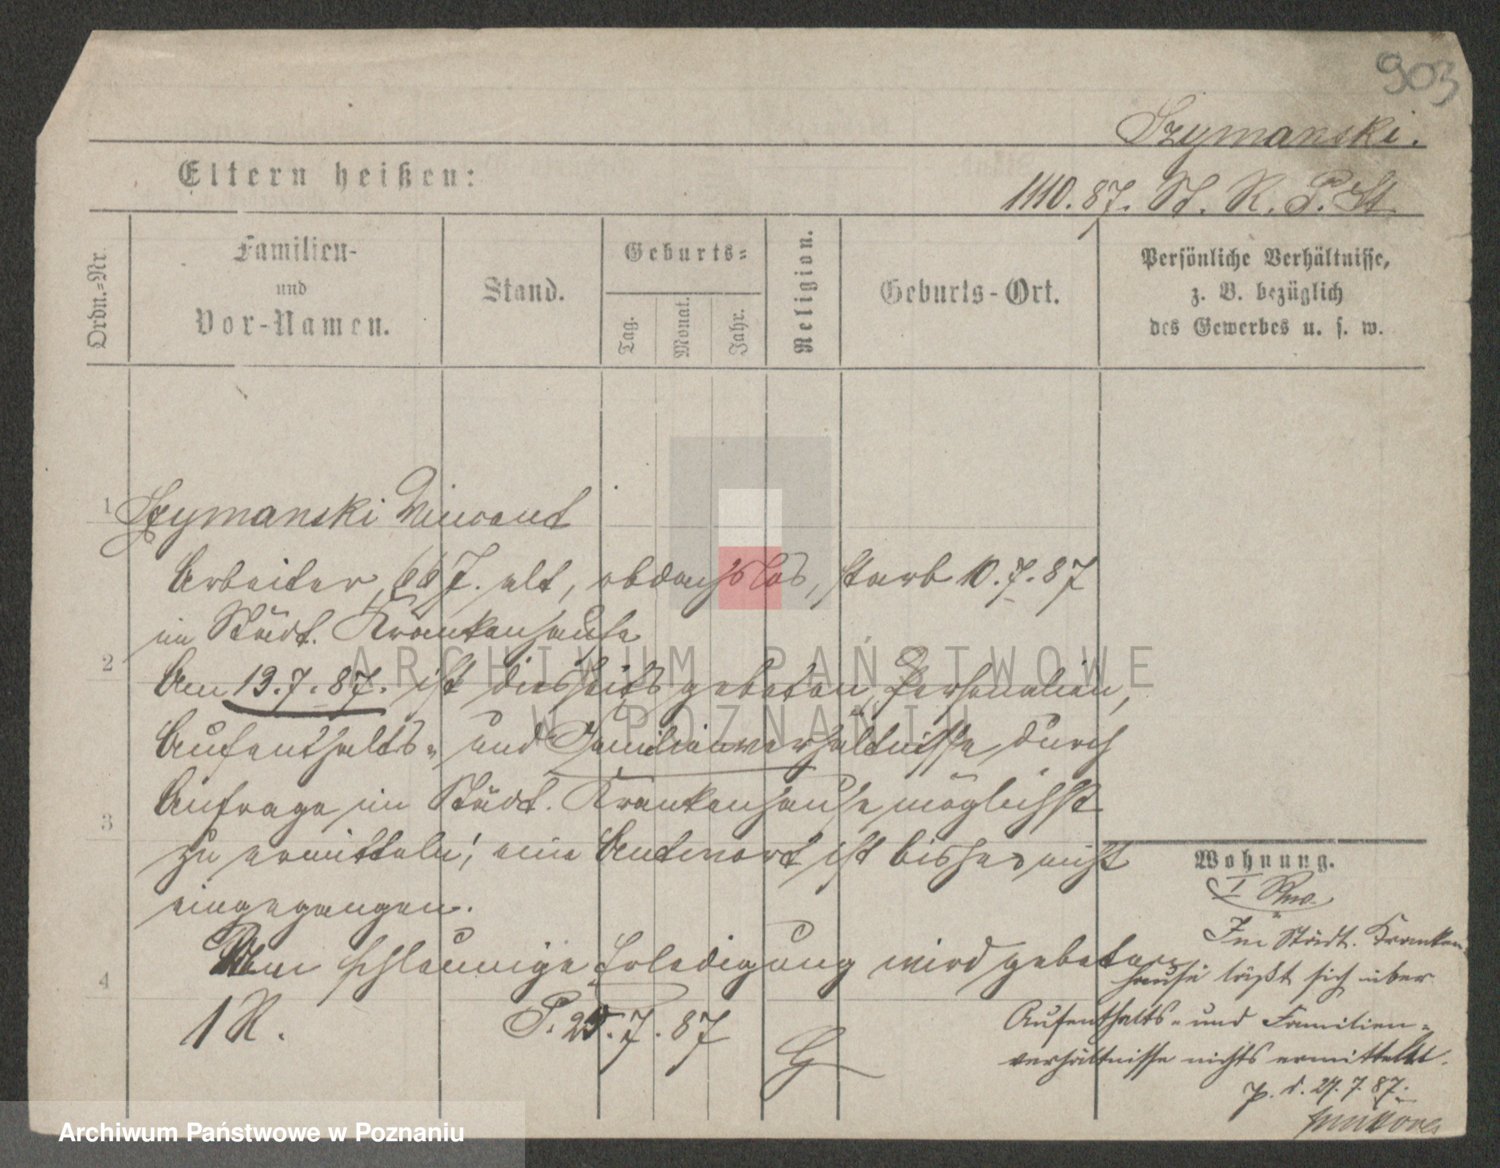 903
Szymanski.
Eltern heißen:
1110. 87. St. R. P. St
Ordn.=Nr.
Familien-
und
Vor-Namen.
Stand.
Geburts=
Tag.
Monat.
Jahr.
Religion.
Geburts-Ort.
Persönliche Verhältnisse,
z. B. bezüglich
des Gewerbes u. s. w.
1
Szymanski Vincent
Arbeiter, 66 J. alt, obdachslos, starb 10.7.87
im Städt. Krankenhause
2
Am 13.7.87. ist diesseits gebeten, Personalien,
Aufenthalts= und Familienverhältnisse durch
Anfrage im Städt. Krankenhause möglichst
3
zu ermitteln; eine Antwort ist bisher nicht
eingegangen.
Um schleunige Erledigung wird gebeten
4
1 R.
P. 25.7.87
G
Wohnung.
I
Im Städt. Kranken
hause läßt sich über
Aufenthalts= und Familien=
verhältnisse nichts ermitteln.
P. d. 27.7.87.
ARCHIWUM PAŃSTWOWE
W POZNANIU
Archiwum Państwowe w Poznaniu